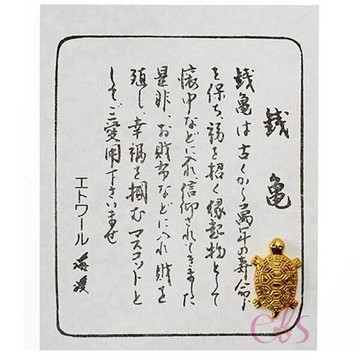 銭亀
銭亀は古くから萬年の寿命
を保ち福を招く縁起物として
懐中などに入れ信仰されてきました
是非、お財布などに入れ財を
殖し、幸福を掴むマスコットと
してご愛用下さいませ
エトワール海渡
ebs